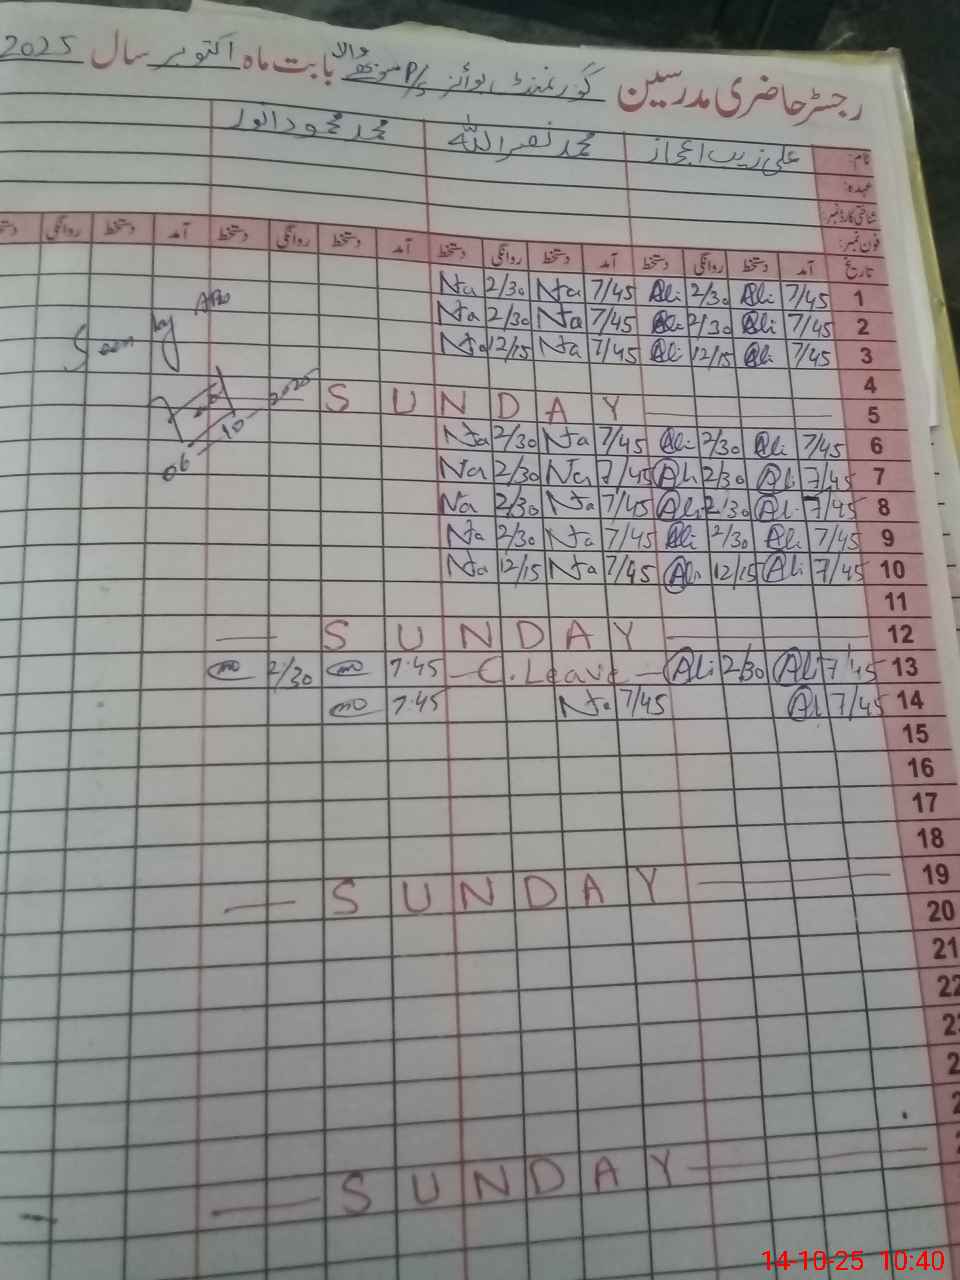 رجسٹر حاضری مدرسین گورنمنٹ بوائز P/S والا بابت ماہ اکتوبر سال 2025
نام: علی زیب اعجاز محمد نصر اللہ محمد محمود انور
عہدہ:
شناختی کارڈ نمبر:
فون نمبر:
تاریخ آمد دستخط روانگی دستخط آمد دستخط روانگی دستخط آمد دستخط روانگی دستخط آمد دستخط روانگی دستخط
Na 2/30 Na 7/45 Ali 2/30 Ali 7/45 1
Na 2/30 Na 7/45 Ali 2/30 Ali 7/45 2
Na 12/15 Na 7/45 Ali 12/15 Ali 7/45 3
4
SUNDAY 5
Na 2/30 Na 7/45 Ali 2/30 Ali 7/45 6
Na 2/30 Na 7/45 Ali 2/30 Ali 7/45 7
Na 2/30 Na 7/45 Ali 2/30 Ali 7/45 8
Na 2/30 Na 7/45 Ali 2/30 Ali 7/45 9
Na 12/15 Na 7/45 Ali 12/15 Ali 7/45 10
11
— SUNDAY — 12
2/30 7:45 — C.Leave — Ali 2/30 Ali 7/45 13
7:45 Na 7/45 Ali 7/45 14
15
16
17
18
— SUNDAY — 19
20
21
22
— SUNDAY —
Seen by
06-10-2025
14-10-25 10:40